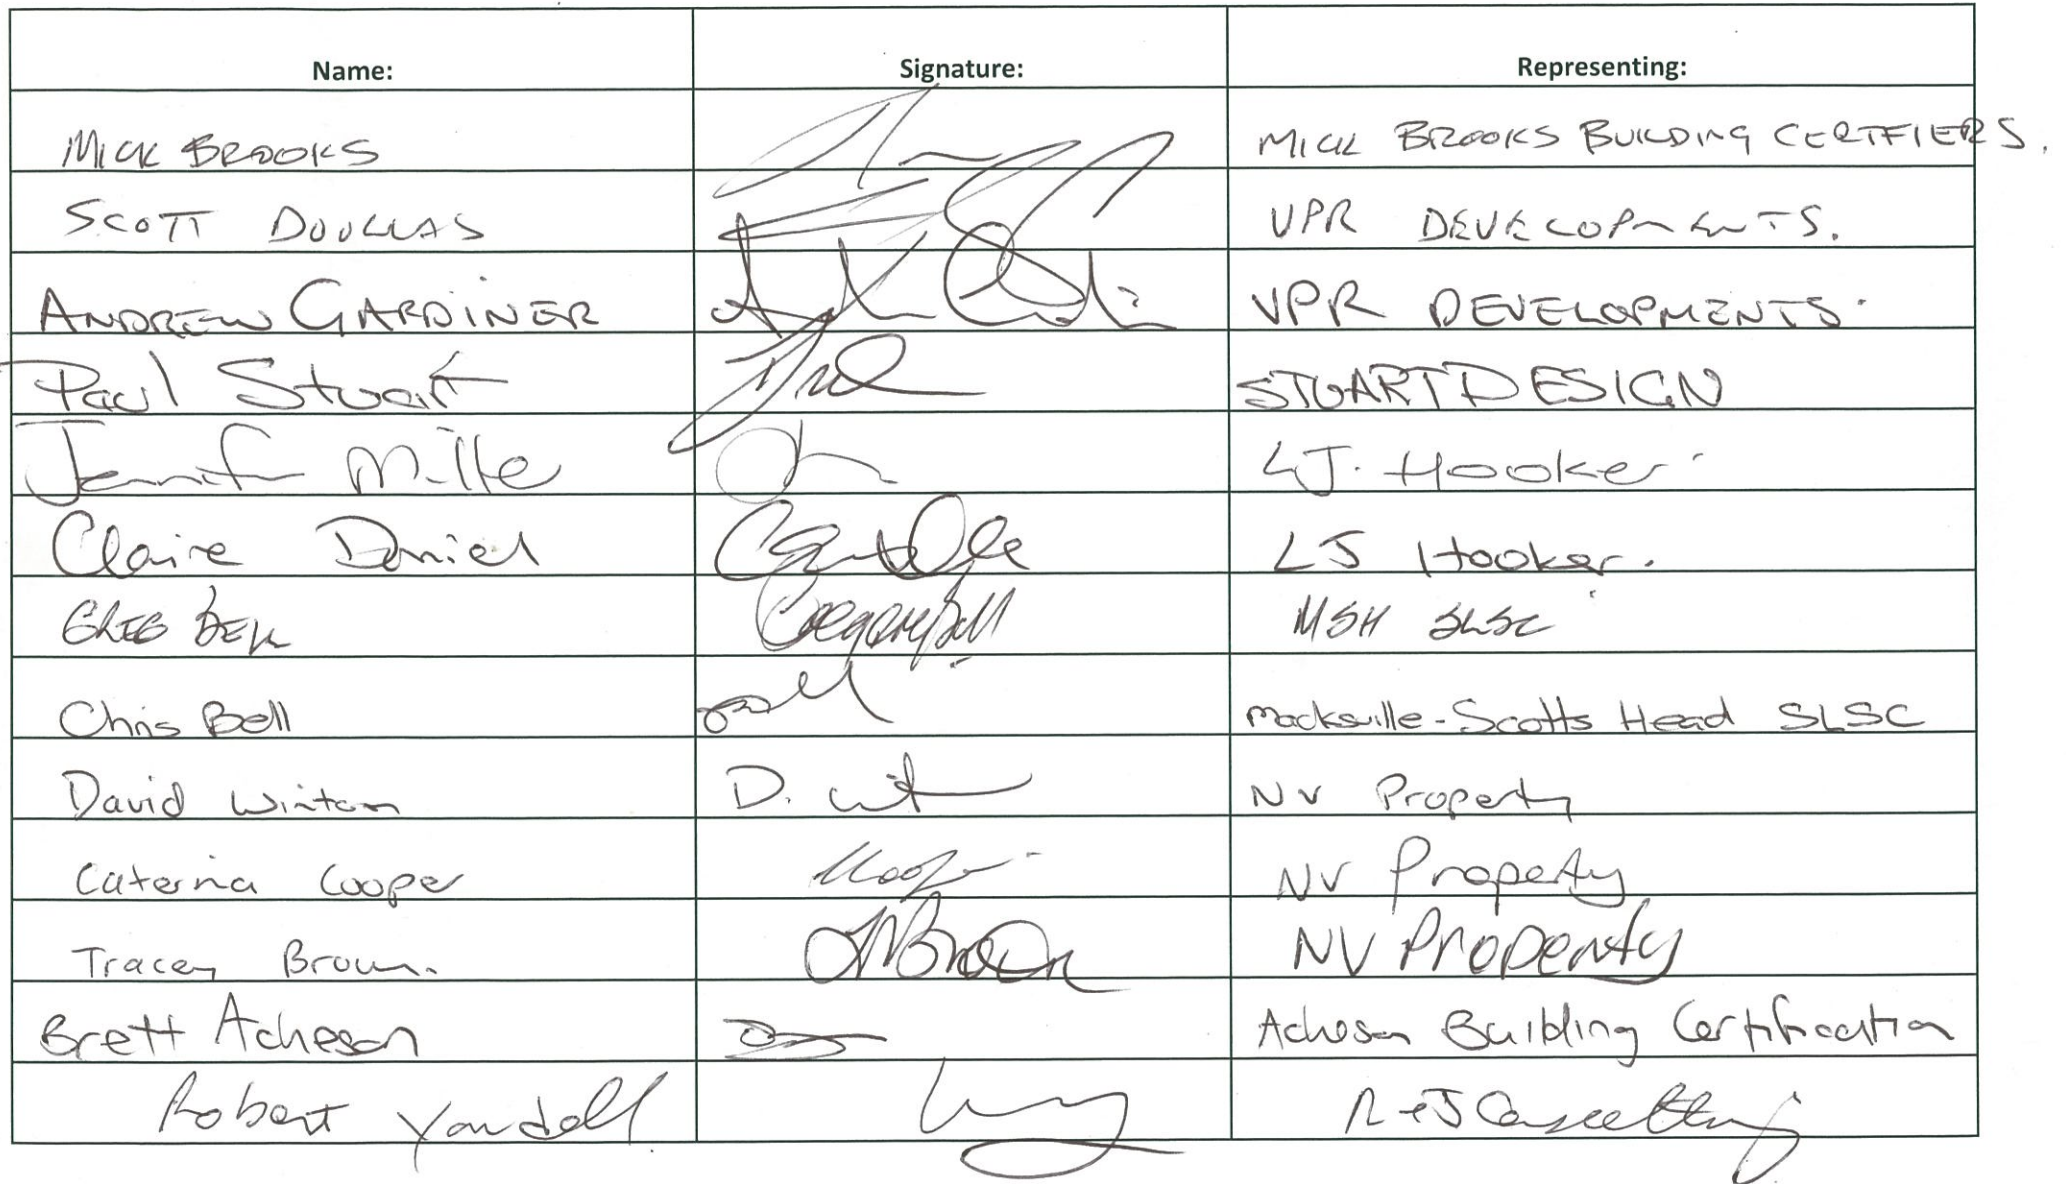 Name: Signature: Representing:
MICK BROOKS MICK BROOKS BUILDING CERTFIERS.
SCOTT DOUGLAS VPR DEVELOPMENTS.
ANDREW GARDINER VPR DEVELOPMENTS.
Paul Stuart STUART DESIGN
Jennifer Miller LJ. Hooker
Claire Daniel LJ Hooker.
GREG BELL MSH SLSC
Chris Bell Macksville-Scotts Head SLSC
David Winton D. NV Property
Caterina Cooper NV Property
Tracey Brown. NV Property
Brett Acheson Acheson Building Certification
Robert Yandell R+J Consulting